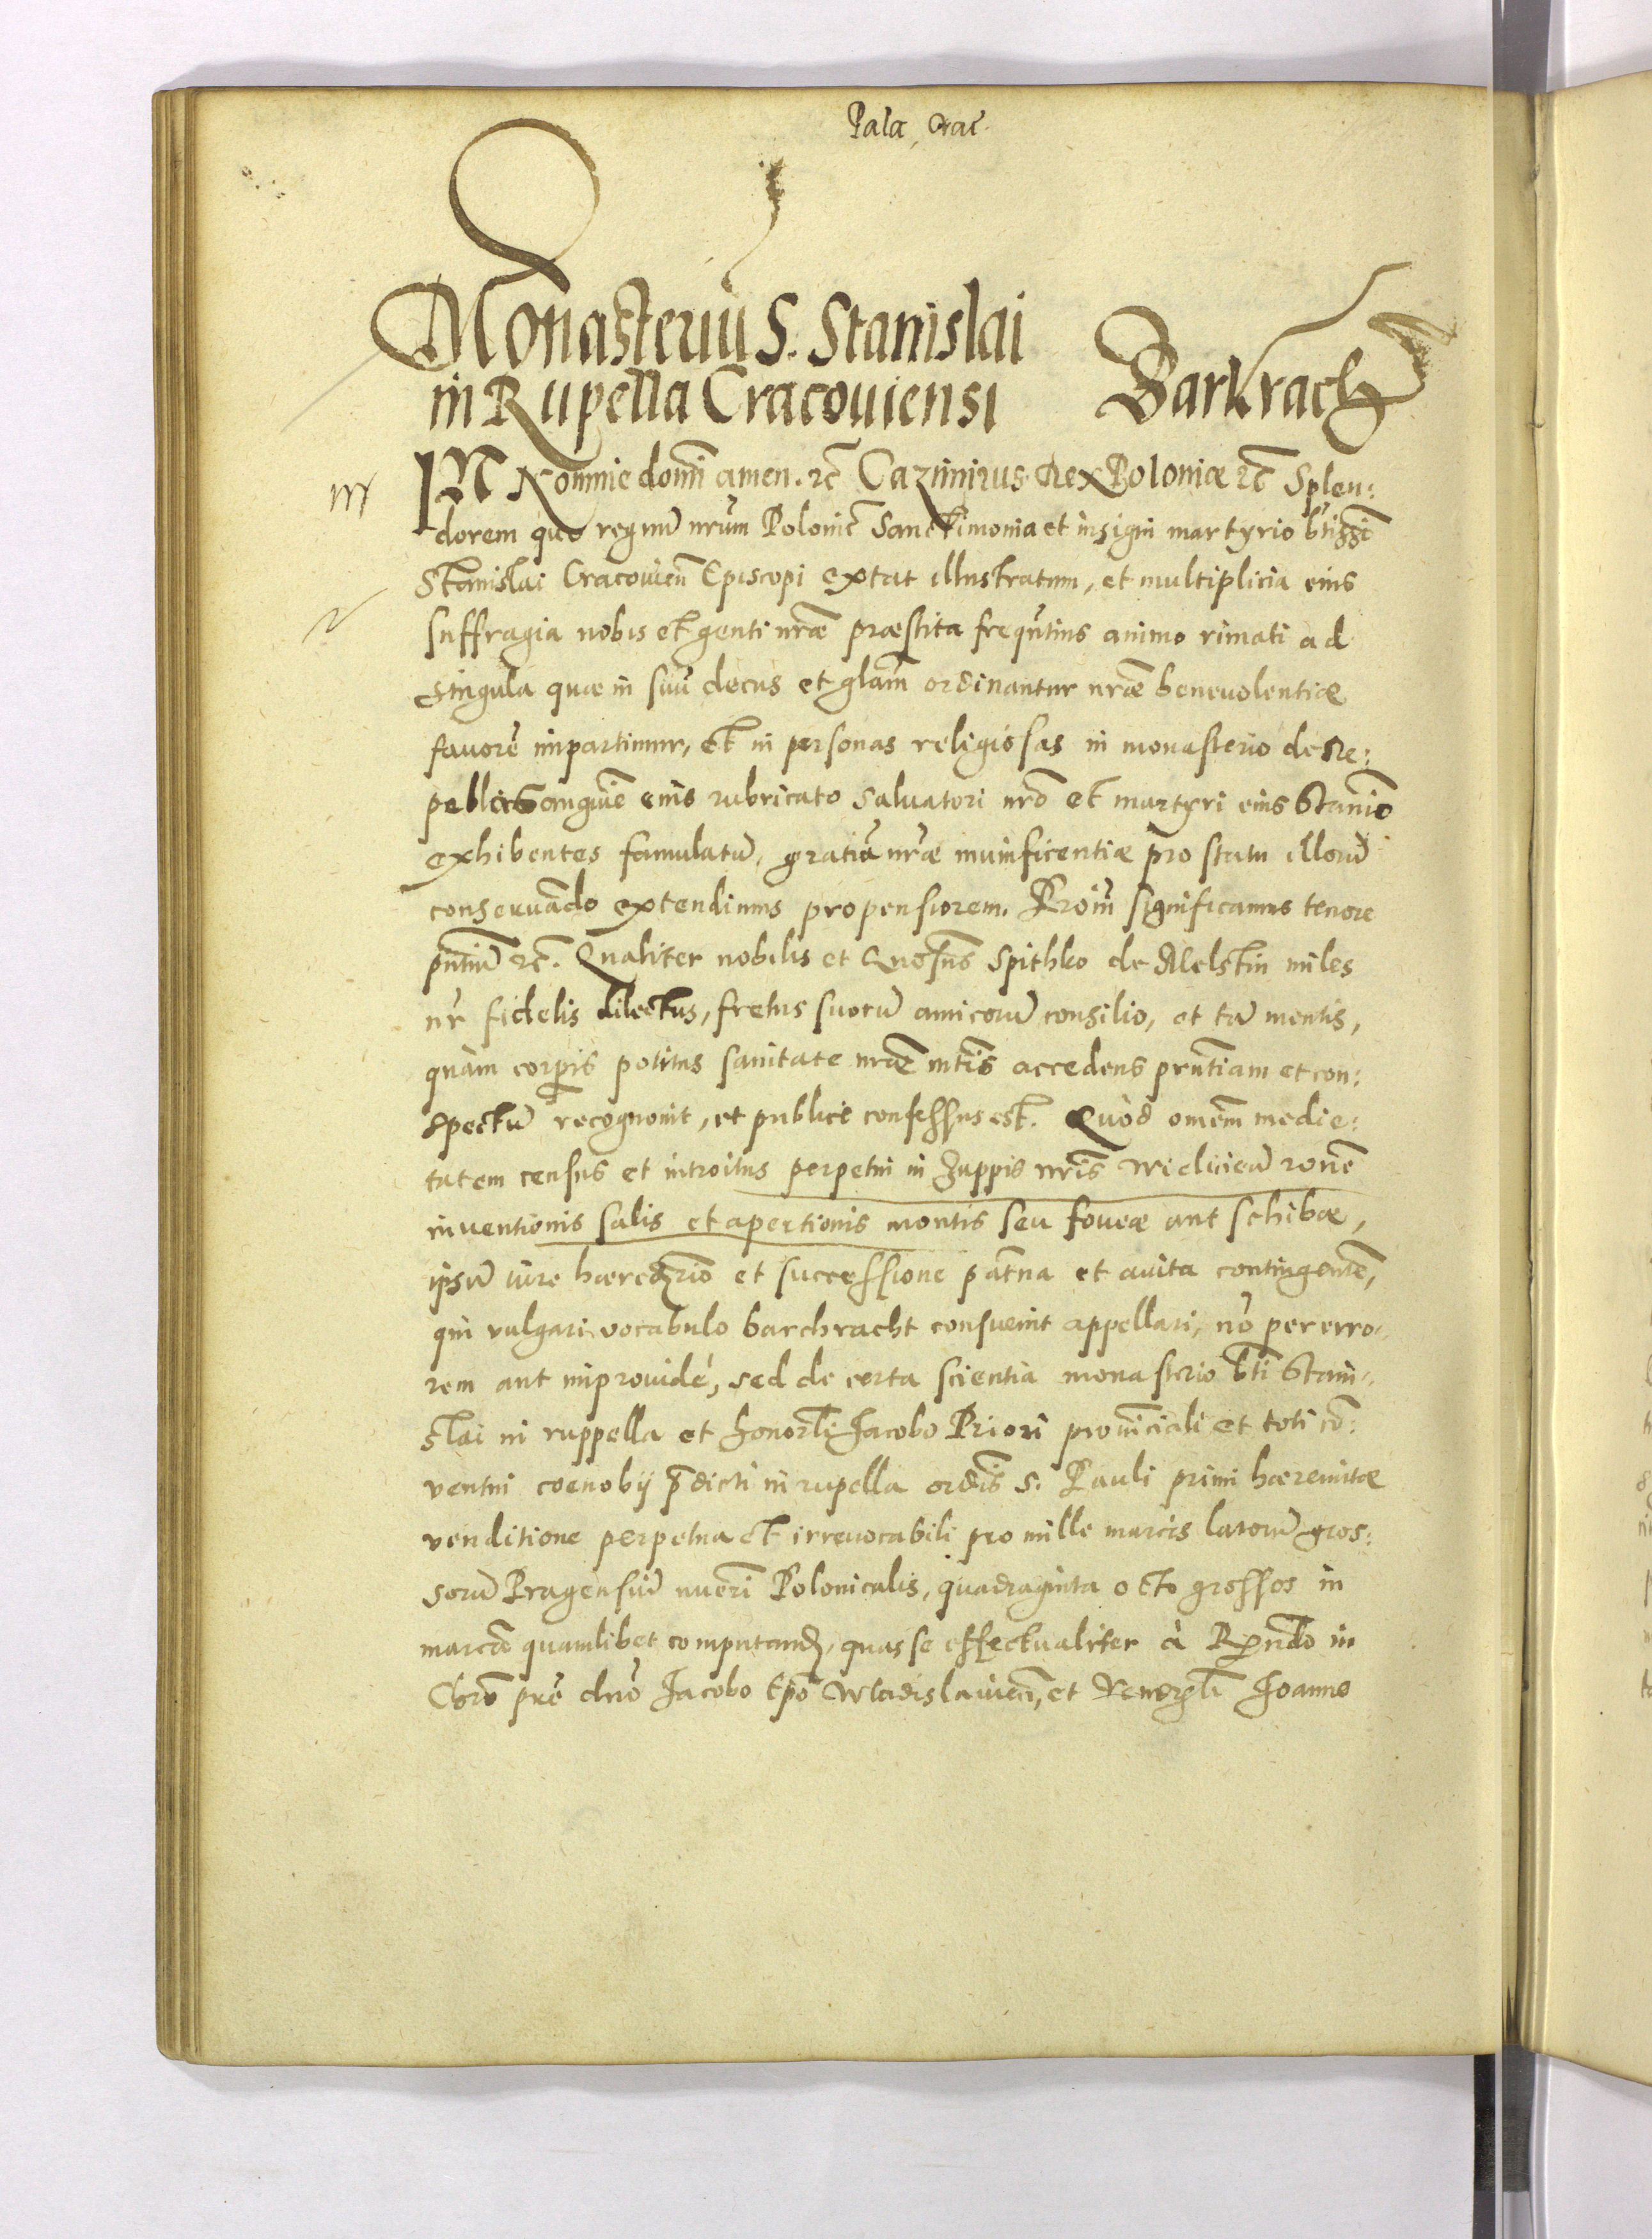 Pala, Crac.
Monasteriū S. Stanislai
in Rupella Cracouiensi Barkrach
IN Nomine domī amen. rc̄ Cazimirus Rex Poloniæ rc̄ Splen:
dorem quo regnū nrūm Poloniē Sanctimonia et insigni martyrio btissī
Stanislai Cracouien̄ Episcopi extat illustratum, et multiplicia eius
suffragia nobis et genti nrāe præstita freqūtius animo rimati ad
singula quæ in suū decus et glam̄ ordinantur nrāe beneuolentiæ
fauorē impartimur, et in personas religiosas in monasterio de Re:
pella Sanguīe eius rubricato Saluatori nrō et martyri eius Stanīo
exhibentes famulatū, gratiā nrāe munificentiæ pro statu illorū
conseruādo extendimus propensiorem. Proin̄ significamus tenore
pn̄tiū rc̄. Qualiter nobilis et Gnosus Spithko de Melstin miles
nr̄ fidelis dilectus, fretus suorū amicorū consilio, et tā mentis,
quàm corp̄is potitus sanitate nrāe mtīs accedens prn̄tiam et con:
spectū recognouit, et publicè confessus est. Quòd omēm medie:
tatem census et introitus perpetui in Zuppis nrīs Wieliciēn ronē
inuentionis salis et apertionis montis seu foueæ aut schibæ,
ipsū iure hæredrīo et successione patn̄a et auita contingentē,
qui vulgari vocabulo barchracht consueuit appellari, nō per erro-
rem aut improuidè, sed de certa scientia monasterio btī Stani-
slai in ruppella et honorlī Jacobo Priori prouinciali et toti cō:
uentui coenobij p̄dicti in rupella ordīs S. Pauli primi hæremitæ
venditione perpetua et irreuocabili pro mille marcis latorū gros:
sorū Pragensiū nuērī Polonicalis, quadraginta octo grossos in
marcā quamlibet computand, quas se effectualiter à Rn̄do in
Chrō prē dnō Jacobo Epō Wladislauien̄, et Venerlī Joanne